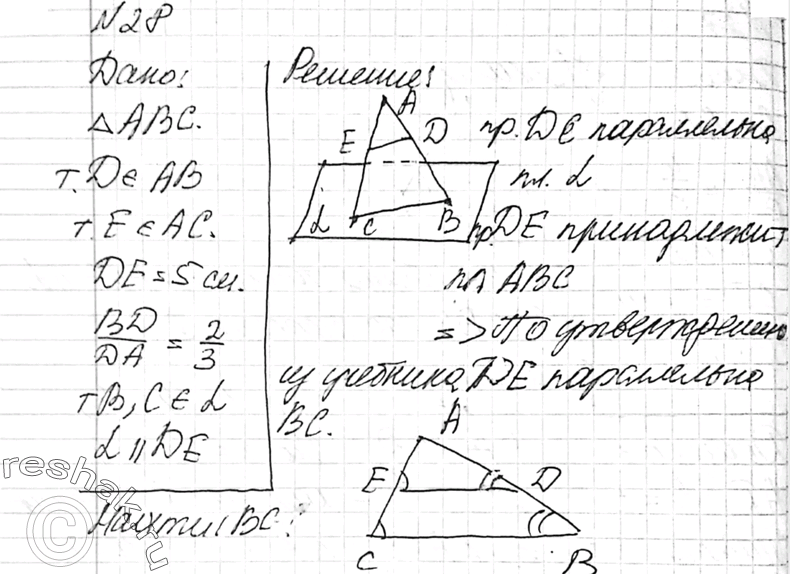 N28
Дано:
△ABC.
т. D∈ AB
т. E ∈ AC.
DE = 5 см.
BD/DA = 2/3
т B, C ∈ α
α || DE
Найти: BC.
Решение:
A
E D
α C B
пр. DE параллельна
пл. α
пр. DE принадлежит
пл ABC
=> По утверждению
из учебника, DE параллельна
BC.
A
E D
C B
reshak.ru
©